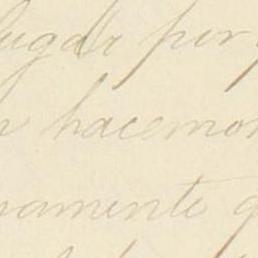 lugar por
hacemos
amente q